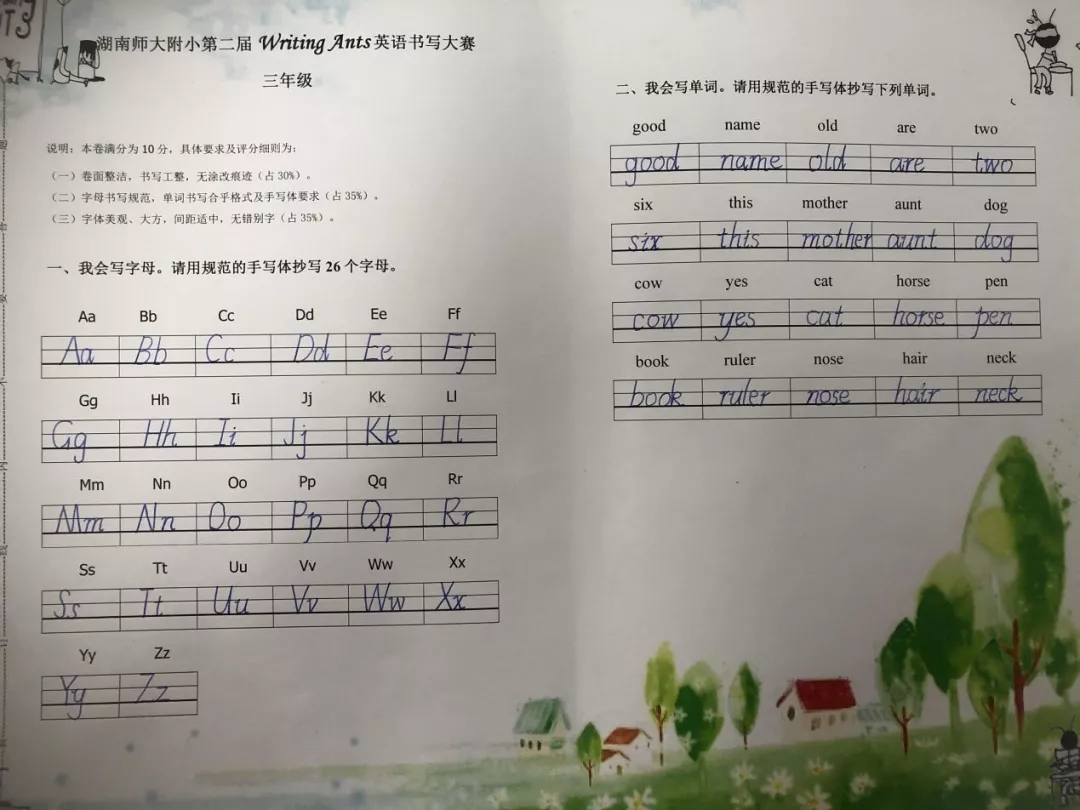 湖南师大附小第二届 Writing Ants 英语书写大赛
三年级
说明：本卷满分为 10 分，具体要求及评分细则为：
（一）卷面整洁，书写工整，无涂改痕迹（占 30%）。
（二）字母书写规范，单词书写合乎格式及手写体要求（占 35%）。
（三）字体美观、大方，间距适中，无错别字（占 35%）。
一、我会写字母。请用规范的手写体抄写 26 个字母。
Aa Bb Cc Dd Ee Ff
Aa Bb Cc Dd Ee Ff
Gg Hh Ii Jj Kk Ll
Gg Hh Ii Jj Kk Ll
Mm Nn Oo Pp Qq Rr
Mm Nn Oo Pp Qq Rr
Ss Tt Uu Vv Ww Xx
Ss Tt Uu Vv Ww Xx
Yy Zz
Yy Zz
二、我会写单词。请用规范的手写体抄写下列单词。
good name old are two
good name old are two
six this mother aunt dog
six this mother aunt dog
cow yes cat horse pen
cow yes cat horse pen
book ruler nose hair neck
book ruler nose hair neck